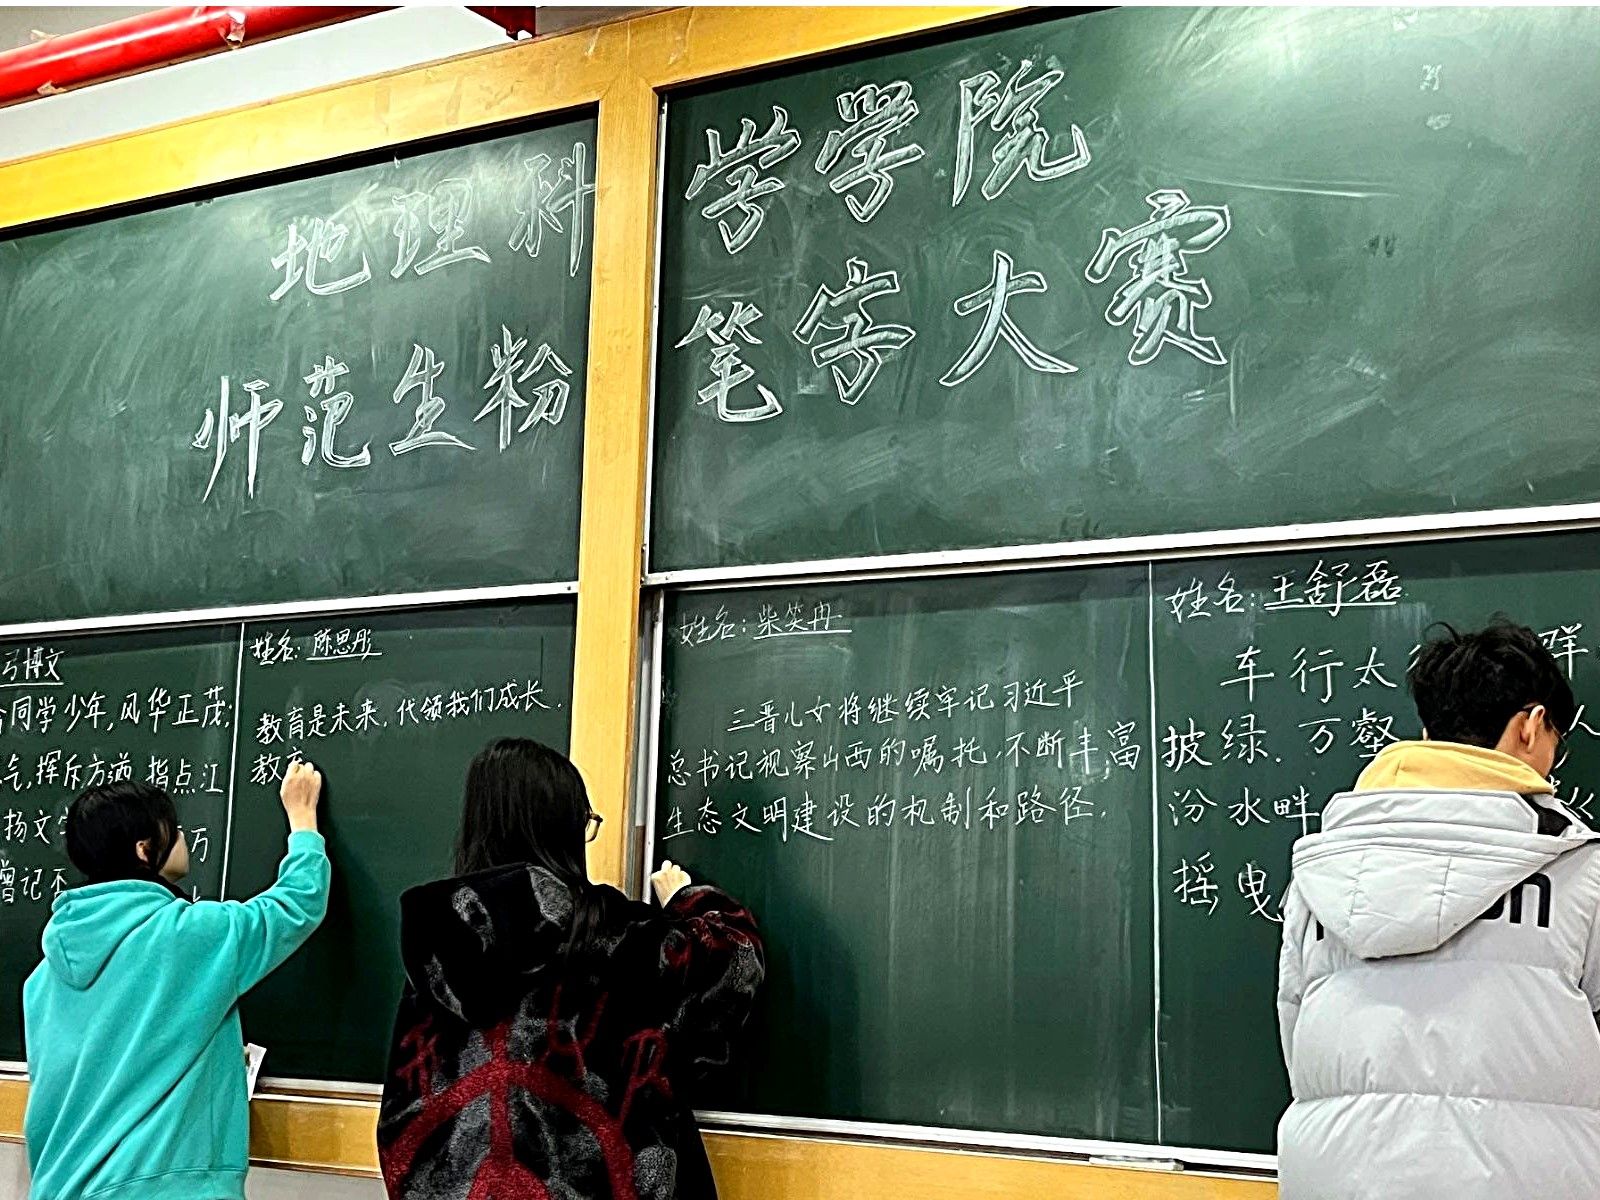 地理科学学院
师范生粉笔字大赛
弓博文
同学少年,风华正茂;
气,挥斥方遒 指点江
扬文字 万
曾记否
姓名:陈思彤
教育是未来,代领我们成长.
教育
姓名:柴笑冉
三晋儿女将继续牢记习近平
总书记视察山西的嘱托,不断丰富
生态文明建设的机制和路径.
姓名:王舒磊
车行太
披绿.万壑 人
汾水畔
摇曳